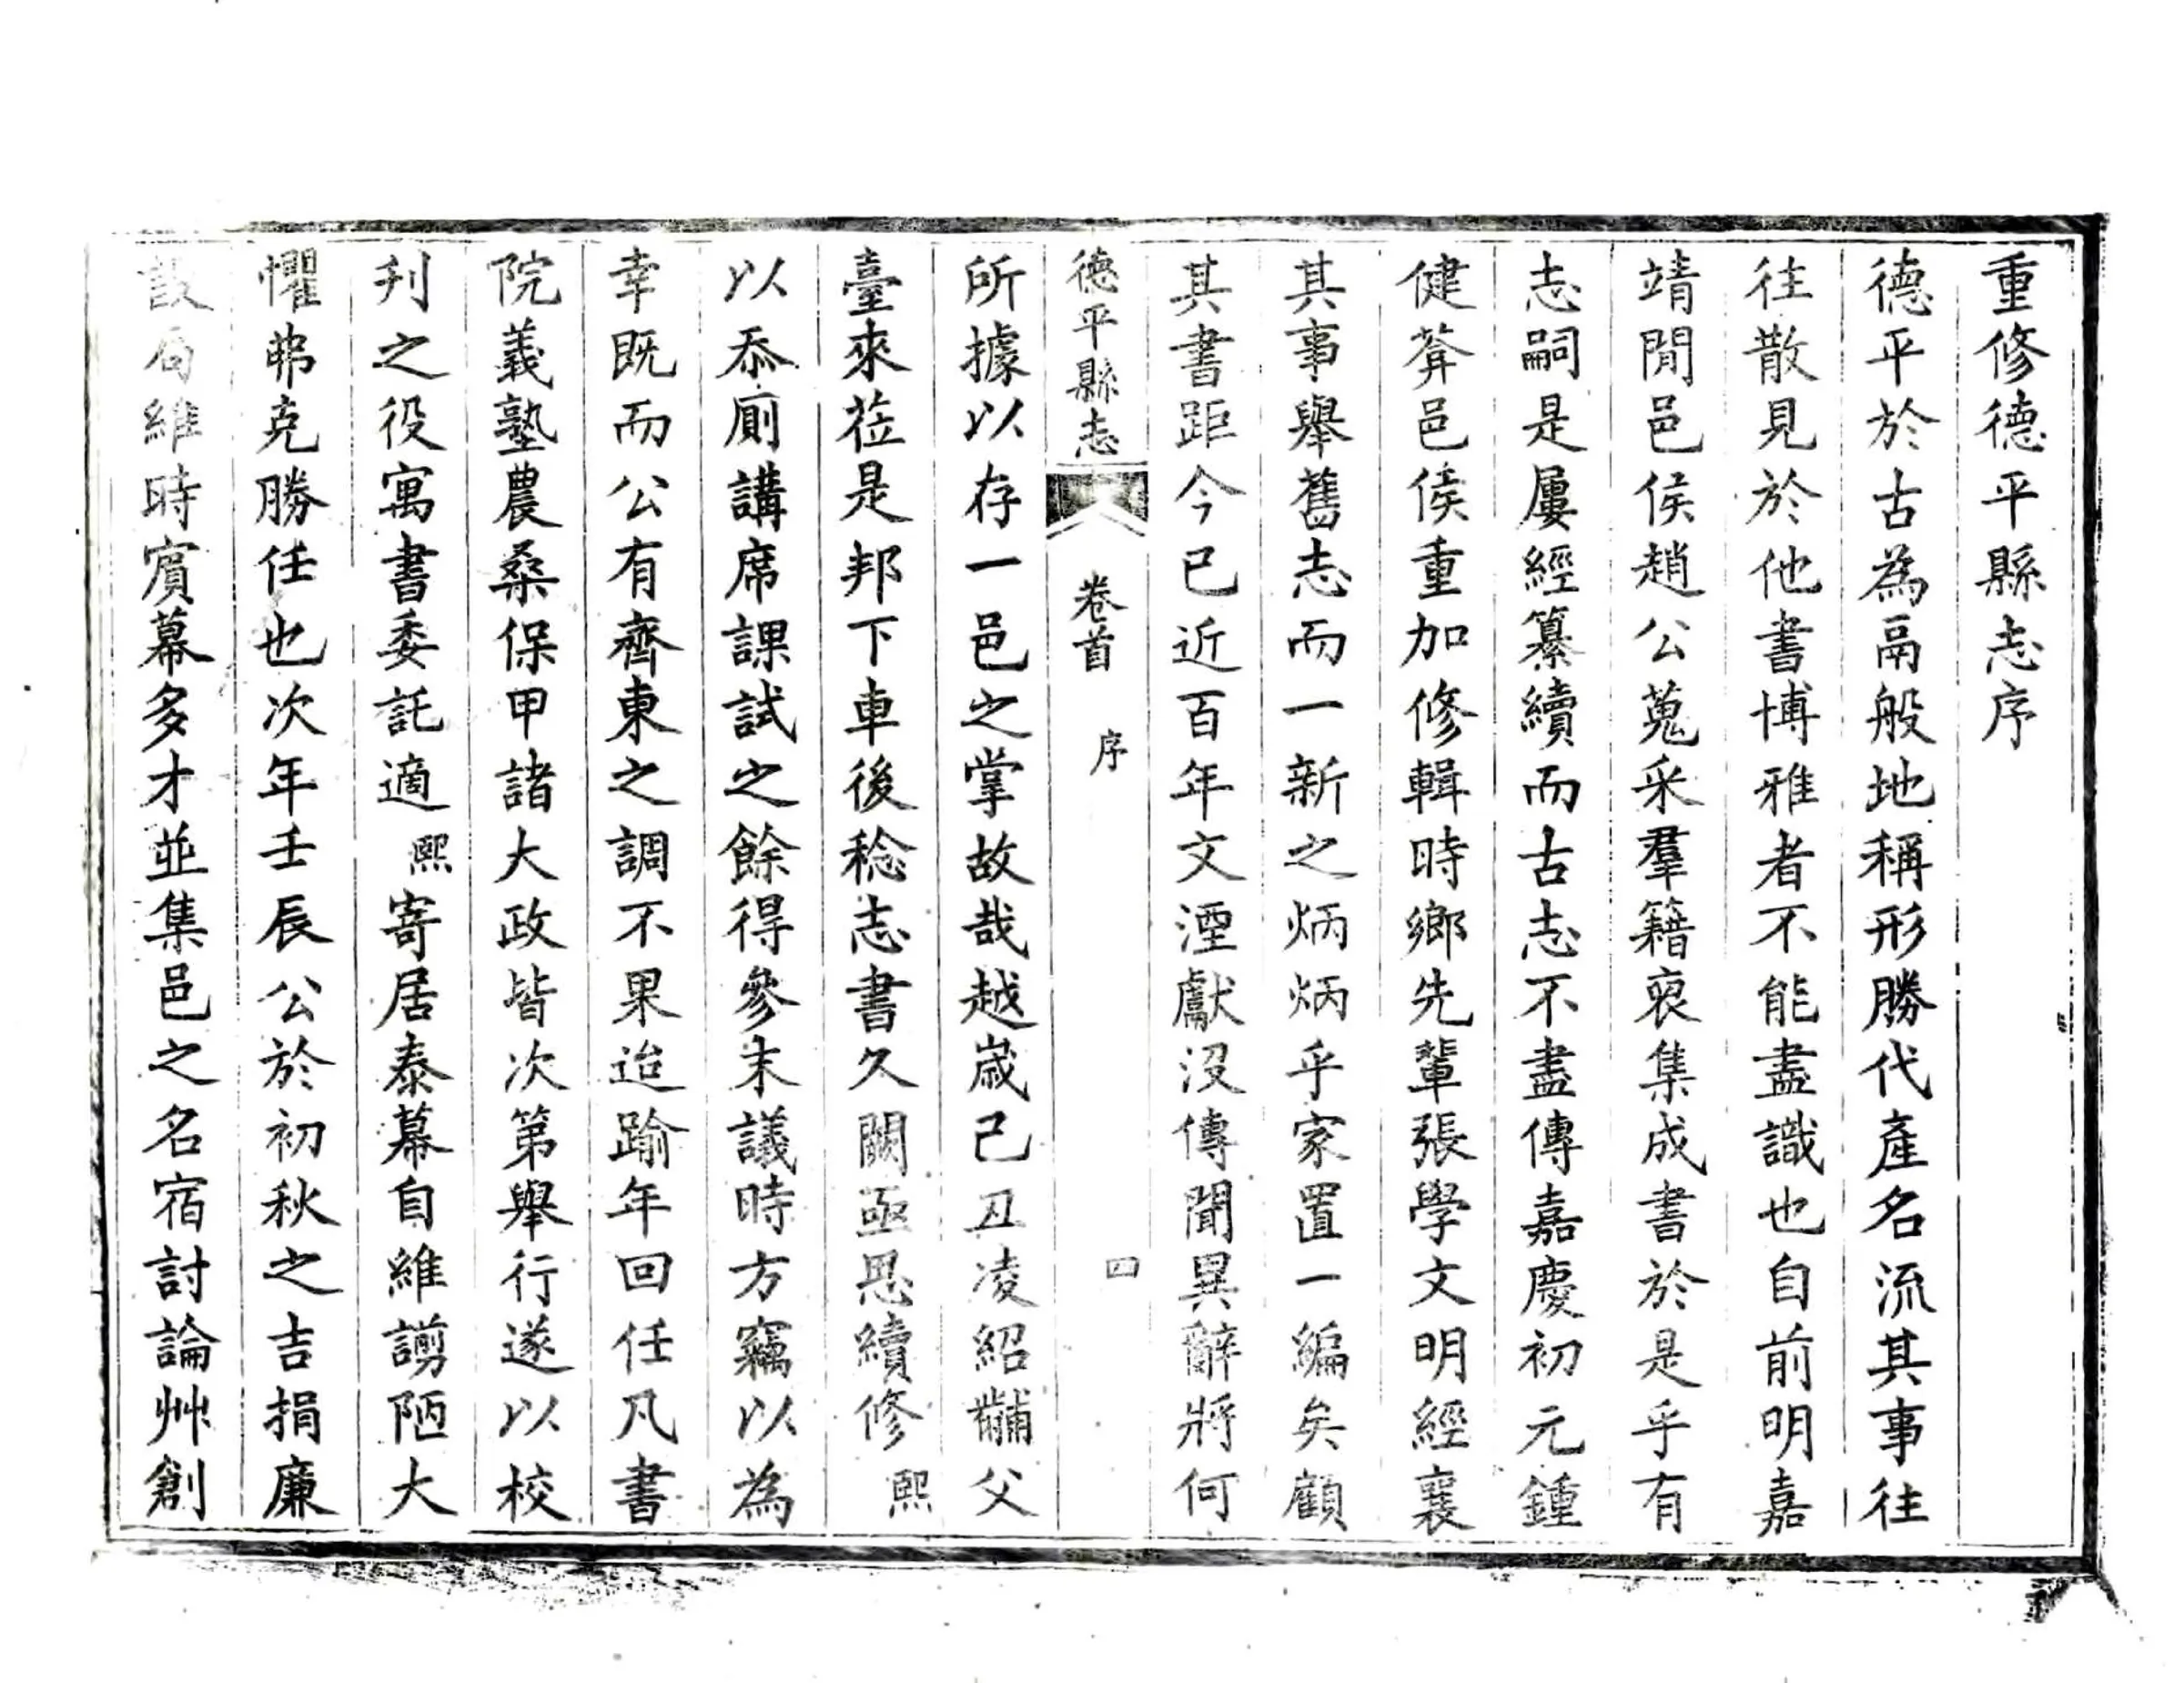 重修德平縣志序
德平於古為鬲般地稱形勝代產名流其事往
往散見於他書博雅者不能盡識也自前明嘉
靖閒邑侯趙公蒐采羣籍裒集成書於是乎有
志嗣是屢經纂續而古志不盡傳嘉慶初元鍾
健菴邑侯重加修輯時鄉先輩張學文明經襄
其事舉舊志而一新之炳炳乎家置一編矣顧
其書距今已近百年文湮獻沒傳聞異辭將何
德平縣志 卷首 序 四
所據以存一邑之掌故哉越歲己丑凌紹黼父
臺來莅是邦下車後稔志書久闕亟思續修熙
以忝廁講席課試之餘得參末議時方竊以為
幸既而公有齊東之調不果迨踰年回任凡書
院義塾農桑保甲諸大政皆次第舉行遂以校
刋之役寓書委託適熙寄居泰幕自維謭陋大
懼弗克勝任也次年壬辰公於初秋之吉捐廉
設局維時賓幕多才並集邑之名宿討論艸創